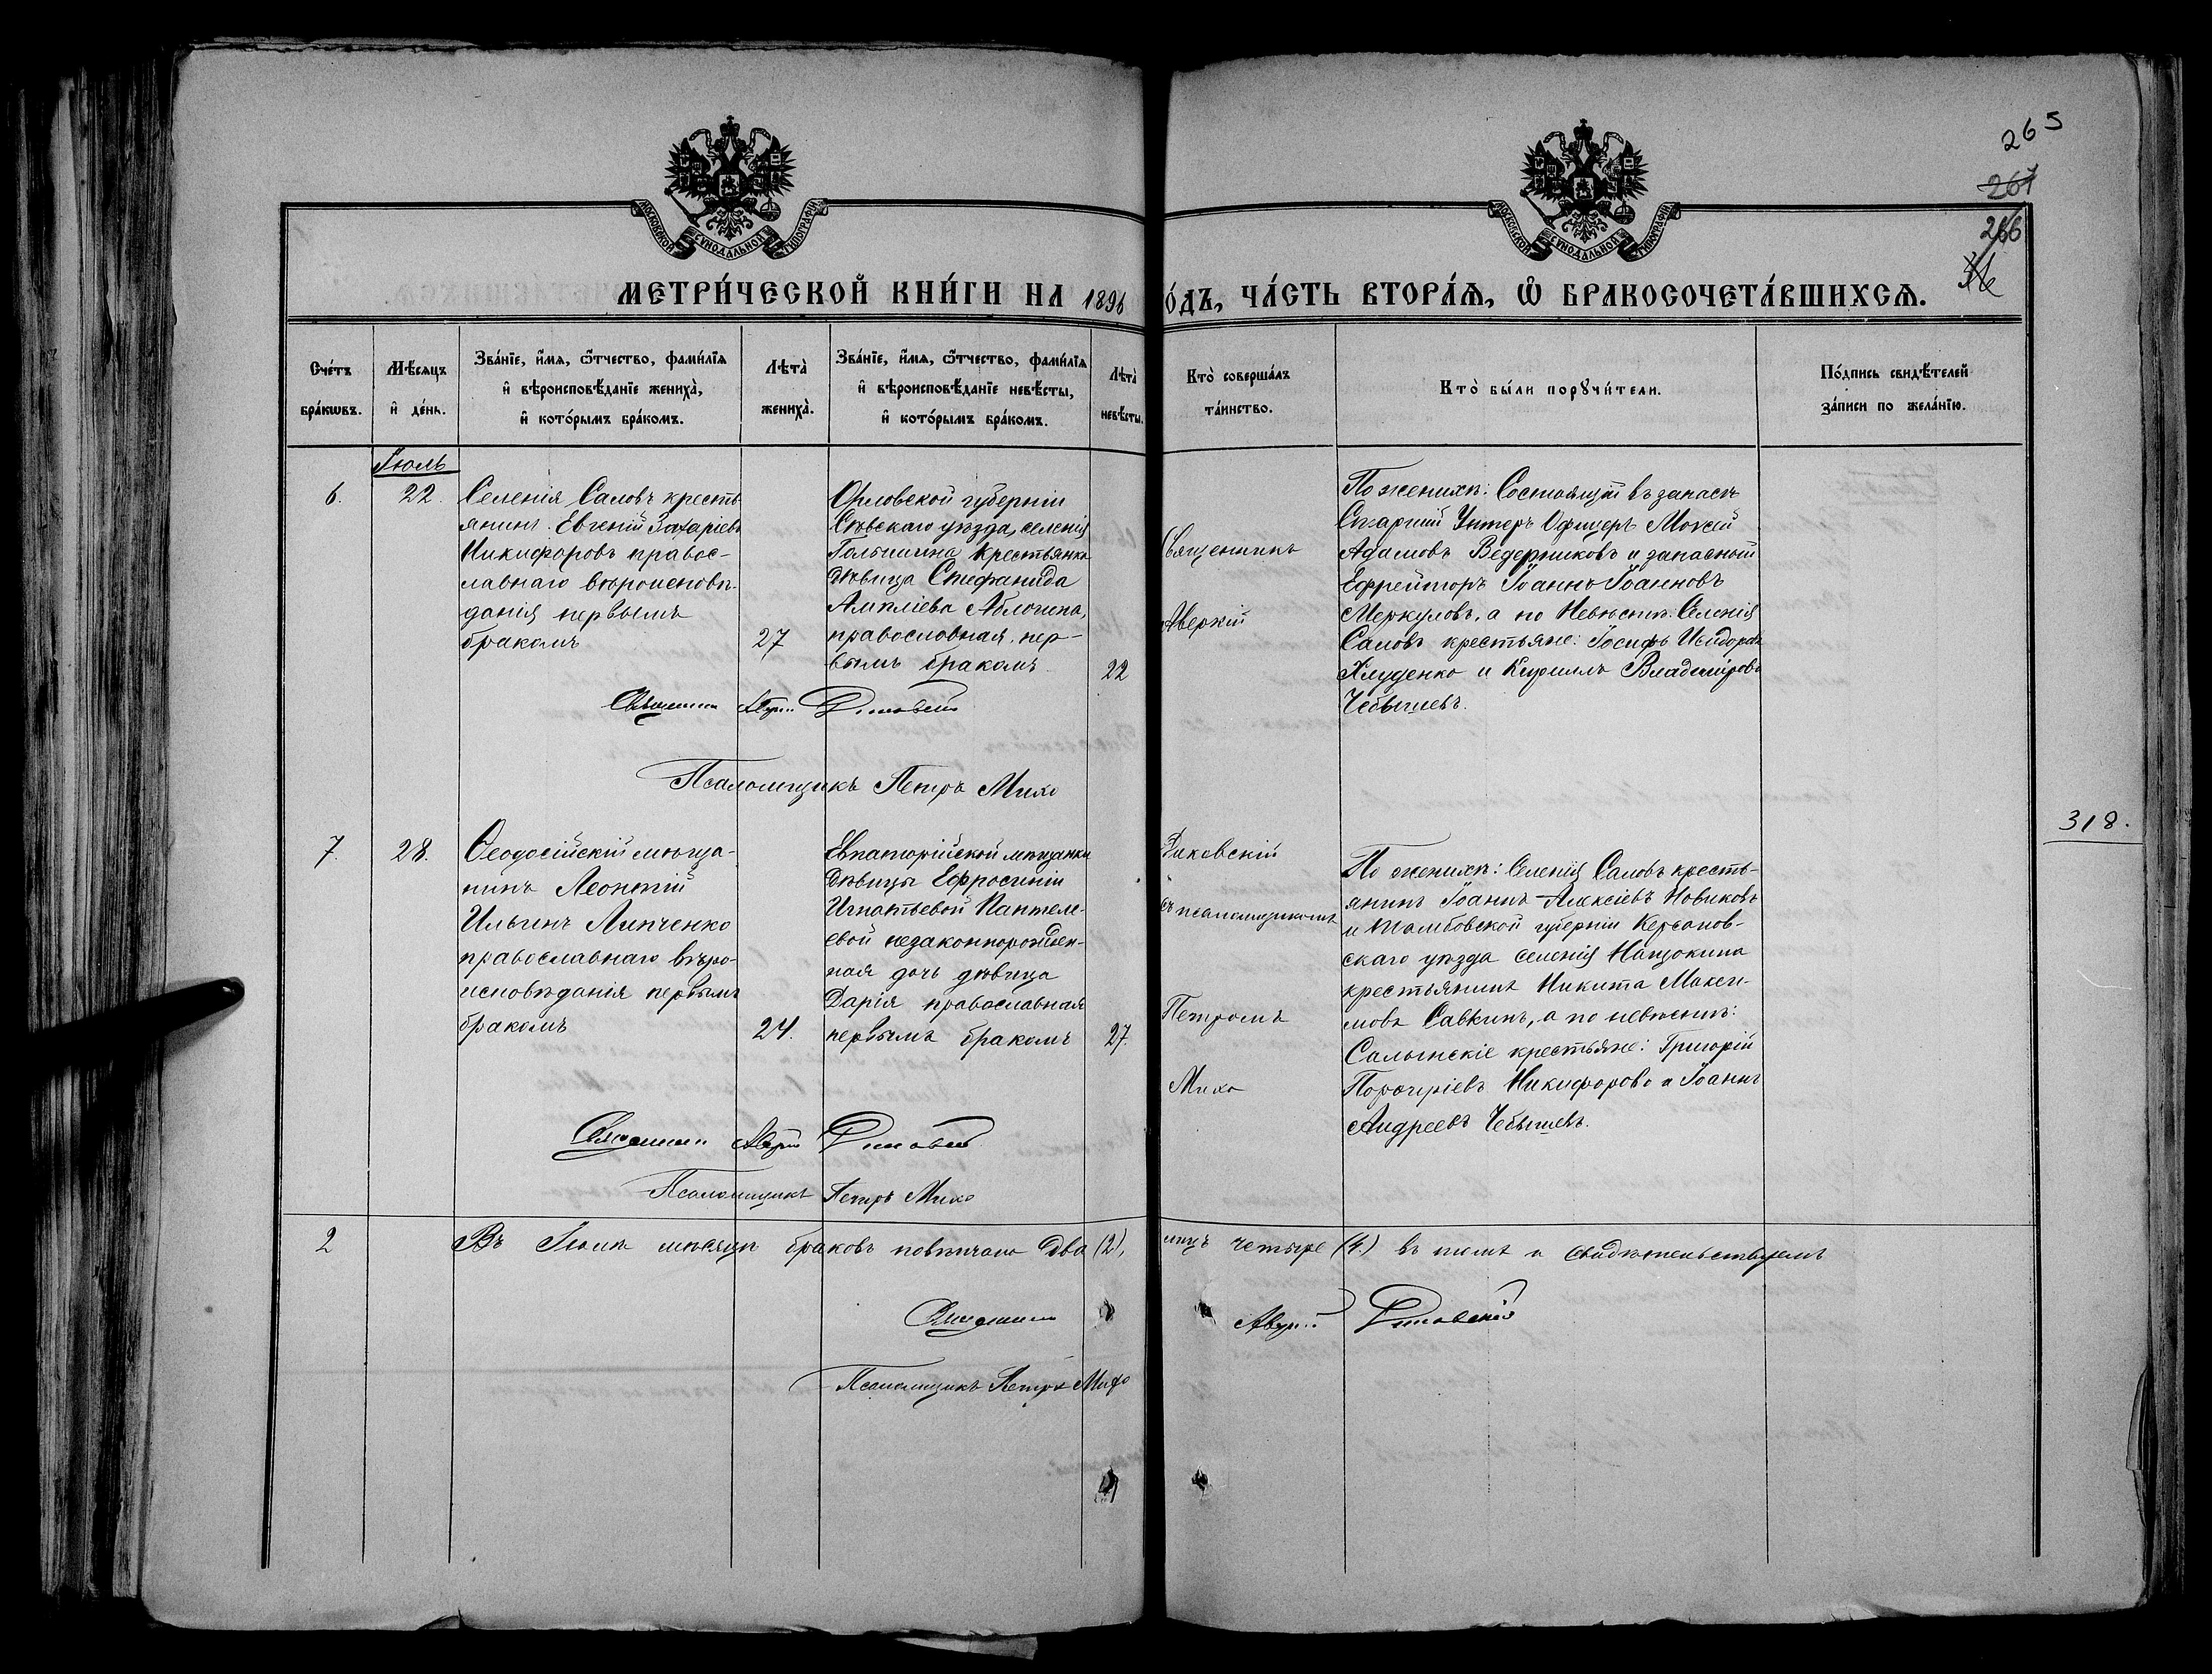 265
261
266
МОСКОВСКОЙ СѴНОДАЛЬНОЙ ТИПОГРАФІИ
МОСКОВСКОЙ СѴНОДАЛЬНОЙ ТИПОГРАФІИ
МЕТРИ́ЧЕСКОЙ КНИ́ГИ НА 1896 ГО́ДЪ, ЧА́СТЬ ВТОРА́Ѧ, Ѡ҆ БРАКОСОЧЕТА́ВШИХСѦ.
Сче́тъ бра́кѡвъ.
Мѣ́сѧцъ и҆ де́нь.
Зва́нїе, и҆́мѧ, ѻ҆́тчество, фами́лїѧ и҆ вѣроисповѣ́данїе жениха̀, и҆ кото́рымъ бра́комъ.
Лѣта̀ жениха̀.
Зва́нїе, и҆́мѧ, ѻ҆́тчество, фами́лїѧ и҆ вѣроисповѣ́данїе невѣ́сты, и҆ кото́рымъ бра́комъ.
Лѣта̀ невѣ́сты.
Кто̀ соверша́лъ та́инство.
Кто̀ бы́ли порꙋчи́тели.
По́дпись свидѣ́телей за́писи по жела́нїю.
Іюль
6.
22.
Селенія Саловъ кресть
янинъ Евгеній Захаріевъ
Никифоровъ правос-
лавнаго вѣроисповѣ-
данія первымъ
бракомъ
27
Орловской губерніи
Сѣвскаго уѣзда, селенія
крестьянка
дѣвица Епифанида
Амплиева Аблогина,
православная, пер-
вымъ бракомъ
22
Священникъ
Аверкій
По женихѣ: Состоящій въ запасѣ
Старшій Унтеръ Офицеръ Мокей
Адамовъ Ведерниковъ и запасный
Ефрейторъ Іоаннъ Іоанновъ
Меркуловъ, а по Невѣстѣ: Селенія
Саловъ крестьяне: Іосифъ Исидоровъ
Хлуденко и Кириллъ Владиміровъ
Чебышевъ.
Священникъ Аверкій
Псаломщикъ Петръ Михо
318.
7.
28.
Ѳеодосійскій мѣща-
нинъ Леонтій
Ильинъ Липченко
православнаго вѣро-
исповѣданія первымъ
бракомъ
24.
Евпаторійской мѣщанки
дѣвицы Ефросиніи
Игнатьевой Пантеле-
евой незаконнорожден-
ная дочь дѣвица
Дарія православная
первымъ бракомъ
27.
съ псаломщикомъ
Петромъ
Михо
По женихѣ: Селенія Саловъ кресть-
янинъ Іоаннъ Алексіевъ Новиковъ
и Тамбовской губерніи Керсанов-
скаго уѣзда селенія Нащокина
крестьянинъ Никита Макси-
мовъ Савкинъ, а по невѣстѣ:
Салынскіе крестьяне: Григорій
Порфиріевъ Никифоровъ и Іоаннъ
Андреевъ Чебышевъ.
Священникъ Аверкій
Псаломщикъ Петръ Михо
2
Въ Іюлѣ мѣсяцѣ браковъ повѣнчано два (2), лицъ четыре (4.) въ томъ и свидѣтельствуемъ
Священникъ Аверкій
Псаломщикъ Петръ Михо